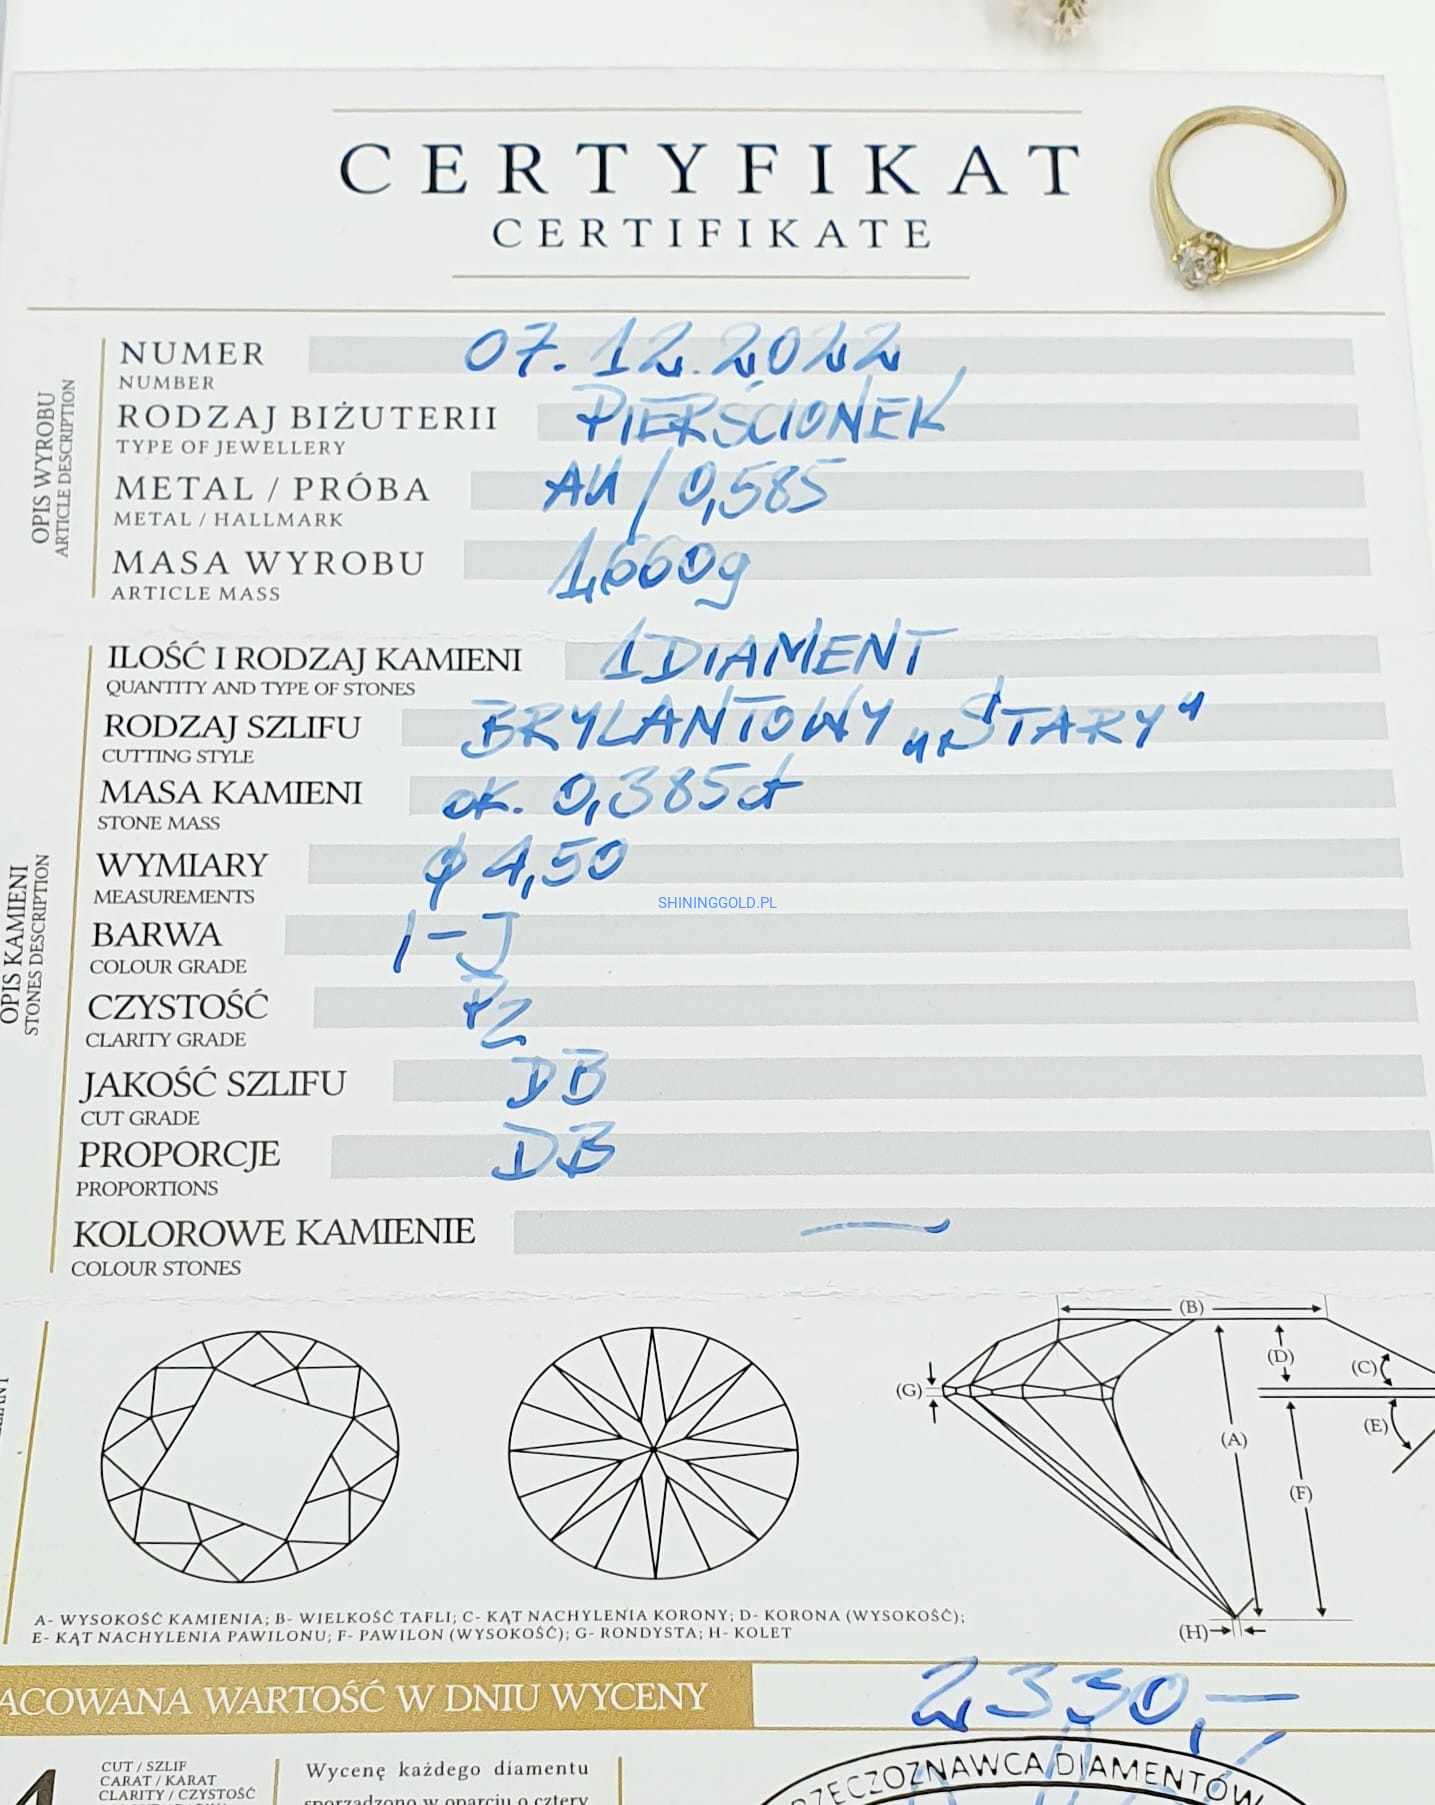 CERTYFIKAT
CERTIFIKATE
OPIS WYROBU
ARTICLE DESCRIPTION
NUMER 07.12.2022
NUMBER
RODZAJ BIŻUTERII PIERŚCIONEK
TYPE OF JEWELLERY
METAL / PRÓBA AU / 0,585
METAL / HALLMARK
MASA WYROBU 1,660g
ARTICLE MASS
OPIS KAMIENI
STONES DESCRIPTION
ILOŚĆ I RODZAJ KAMIENI 1 DIAMENT
QUANTITY AND TYPE OF STONES
RODZAJ SZLIFU BRYLANTOWY „STARY"
CUTTING STYLE
MASA KAMIENI ok. 0,385ct
STONE MASS
WYMIARY ϕ 4,50
MEASUREMENTS
SHININGGOLD.PL
BARWA I-J
COLOUR GRADE
CZYSTOŚĆ P2
CLARITY GRADE
JAKOŚĆ SZLIFU DB
CUT GRADE
PROPORCJE DB
PROPORTIONS
KOLOROWE KAMIENIE —
COLOUR STONES
(B)
(D)
(C)
(G)
(E)
(A)
(F)
(H)
A- WYSOKOŚĆ KAMIENIA; B- WIELKOŚĆ TAFLI; C- KĄT NACHYLENIA KORONY; D- KORONA (WYSOKOŚĆ);
E- KĄT NACHYLENIA PAWILONU; F- PAWILON (WYSOKOŚĆ); G- RONDYSTA; H- KOLET
ACOWANA WARTOŚĆ W DNIU WYCENY 2330,-
4
CUT / SZLIF
CARAT / KARAT
CLARITY / CZYSTOŚĆ
Wycenę każdego diamentu
sporządzono w oparciu o cztery
RZECZOZNAWCA DIAMENTÓW